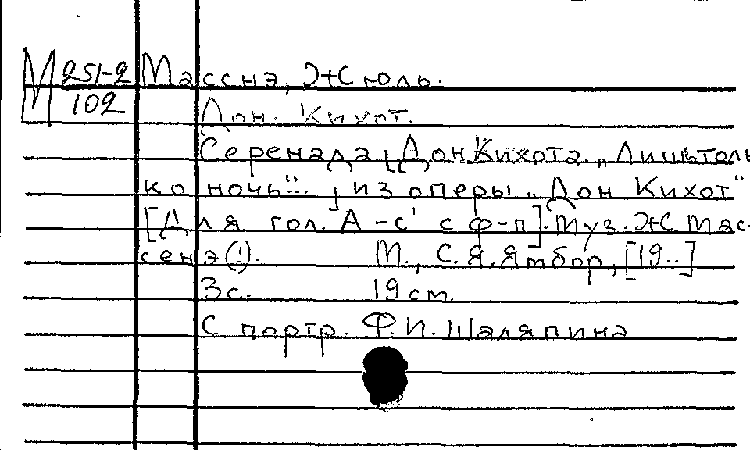 М 251-2 Масснэ, Жюль.
102
Дон. Кихот.
Серенада Дон Кихота „Лишь толь
ко ночь“... из оперы „Дон Кихот“
[Для гол. А - с' с ф-п]. Муз. Ж. Мас-
сенэ (!). М., С. Я. Ямбор, [19..]
3 с. 19 см.
С портр. Ф. И. Шаляпина